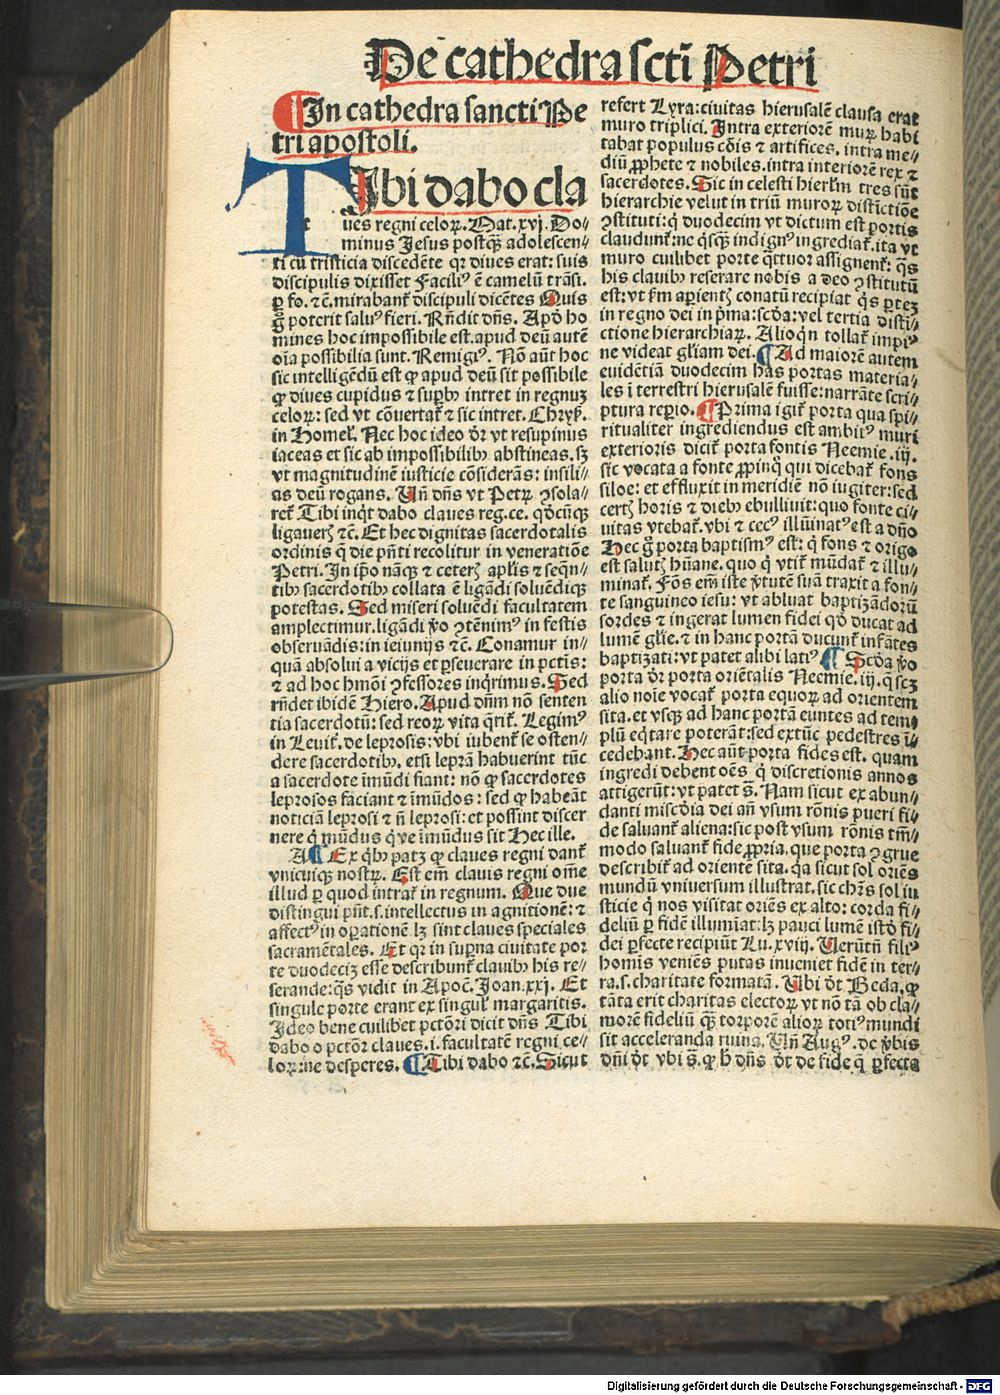 De cathedra scti Petri
¶ In cathedra sancti Pe
tri apostoli.
Tibi dabo cla
ues regni celoꝝ. Mat. xvj. Do⸗
minus Jesus postqȝ adolescen⸗
tē cū tristicia discedēte qꝛ diues erat: suis
discipulis dixisset Facili⁹ ē camelū trāsi.
ꝑ fo. ⁊c̄. mirabant᷑ discipuli dicētes Quis
g̊ poterit salu⁹ fieri. Rn̄dit dn̄s. Apd̓ ho
mines hoc impossibile est. apud deū autē
oīa possibilia sunt. Remigi⁹. Nō aūt hoc
sic intelligēdū est ꝙ apud deū sit possibile
ꝙ diues cupidus ⁊ suꝑbꝰ intret in regnuȝ
celoꝝ: sed vt cōuertat᷑ ⁊ sic intret. Chrys̓.
in Homel̓. Nec hoc ideo dr̄ vt resupinus
iaceas et sic ab impossibilibꝰ abstineas. sȝ
vt magnitudinē iusticie cōsiderās: insili⸗
as deū rogans. Vn̄ dn̄s vt Petꝝ ꝯsola⸗
ret᷑ Tibi inqt dabo claues reg. ce. qd̓cūqȝ
ligauerꝭ ⁊c̄. Et hec dignitas sacerdotalis
ordinis q̄ die pn̄ti recolitur in veneratiōe
Petri. In ip̄o nāqȝ ⁊ ceterꝭ apl̓is ⁊ seqn̄⸗
tibꝰ sacerdotibꝰ collata ē ligādi soluēdiqȝ
potestas. Sed miseri soluēdi facultatem
amplectimur. ligādi v̓o ꝯtēnim⁹ in festis
obseruādis: in ieiunijs ⁊c̄. Conamur in⸗
quā absolui a vicijs et ꝑseuerare in pctīs:
⁊ ad hoc hmōi ꝯfessores inqrimus. Sed
rn̄det ibidē Hiero. Apud dn̄m nō senten
tia sacerdotū: sed reoꝝ vita qrit᷑. Legim⁹
in Leuit̓. de leprosis: vbi iubent᷑ se osten⸗
dere sacerdotibꝰ. etsi leprā habuerint tūc
a sacerdote īmūdi fiant: nō ꝙ sacerdotes
leprosos faciant ⁊ īmūdos: sed ꝙ habeāt
noticiā leprosi ⁊ n̄ leprosi: et possint discer
nere q̇ mūdus q̇ ve īmūdus sit Hec ille.
A ¶ Ex qbꝰ patȝ ꝙ claues regni dant᷑
vnicuiqȝ nostꝝ. Est em̄ clauis regni om̄e
illud ꝑ quod intrat᷑ in regnum. Que due
distingui pn̄t. s. intellectus in agnitionē: ⁊
affect⁹ in oꝑationē lȝ sint claues speciales
sacramētales. Et qꝛ in suꝑna ciuitate por
te duodeciȝ esse describunt᷑ clauibꝰ his re⸗
serande: qs̄ vidit in Apoc̄. Joan. xxj. Et
singule porte erant ex singul̓ margaritis.
Ideo bene cuilibet pctōri dicit dn̄s Tibi
dabo o pctōr claues. i. facultatē regni ce⸗
loꝝ ne desperes. ¶ Tibi dabo ⁊c̄. Sicut
refert Lyra: ciuitas hierusalē clausa erat
muro triplici. Intra exteriorē muꝝ habi
tabat populus cōis ⁊ artifices. intra me⸗
diū ꝓphete ⁊ nobiles. intra interiorē rex ⁊
sacerdotes. Sic in celesti hierl̓m tres sūt
hierarchie velut in triū muroꝝ distīctiōe
ꝯstituti: q̇ duodecim vt dictum est portis
claudunt᷑: ne qsqȝ indign⁹ ingrediat᷑. ita vt
muro cuilibet porte qttuor assignent᷑: qs̄
his clauibꝰ reserare nobis a deo ꝯstitutū
est: vt fm̄ aꝑientꝭ conatū recipiat qs ꝑ teȝ
in regno dei in pͥma: scd̓a: vel tertia disti⸗
ctione hierarchiaꝝ. Alioqn tollat᷑ impi⁹
ne videat gl̓iam dei. ¶ Ad maiorē autem
euidētiā duodecim has portas materia⸗
les ī terrestri hierusalē fuisse: narrāte scri⸗
ptura reꝑio. ¶ Prima igit᷑ porta qua spi⸗
ritualiter ingrediendus est ambit⁹ muri
exterioris dicit᷑ porta fontis Neemie. iij.
sic vocata a fonte ꝓpinq̊ qui dicebat᷑ fons
siloe: et effluxit in meridiē nō iugiter: sed
certꝭ horis ⁊ diebꝰ ebulliuit: quo fonte ci⸗
uitas vtebat᷑. vbi ⁊ cec⁹ illūinat⁹ est a dn̄o
Hec g̊ porta baptism⁹ est: q̇ fons ⁊ origo
est salutꝭ hūane. quo q̇ vtit᷑ mūdat᷑ ⁊ illu⸗
minat᷑. Fōs em̄ iste v̓tutē suā traxit a fon⸗
te sanguineo iesu: vt abluat baptizādorū
sordes ⁊ ingerat lumen fidei qd̓ ducat ad
lumē gl̓ie. ⁊ in hanc portā ducunt᷑ infātes
baptizati: vt patet alibi lati⁹ ¶ Scd̓a v̓o
porta dr̄ porta oriētalis Neemie. iij. q̄ sȝ
alio noīe vocat᷑ porta equoꝝ ad orientem
sita. et vsqȝ ad hanc portā euntes ad tem⸗
plū eqtare poterāt: sed extūc pedestres ī⸗
cedebant. Hec aūt porta fides est. quam
ingredi debent oēs q̇ discretionis annos
attigerūt: vt patet s̄. Nam sicut ex abun⸗
danti miscd̓ia dei an̄ vsum rōnis pueri fi⸗
de saluant᷑ aliena: sic post vsum rōnis tm̄⸗
modo saluant᷑ fide ꝓpria. que porta ꝯgrue
describit᷑ ad orientē sita. qa sicut sol oriēs
mundū vniuersum illustrat. sic chr̄s sol iu
sticie q̇ nos visitat oriēs ex alto: corda fi⸗
deliū ꝑ fidē illumīat: lȝ pauci lumē istd̓ fi⸗
dei ꝑfecte recipiūt Lu. xviij. Verūtn̄ fili⁹
homīs veniēs putas inueniet fidē in ter⸗
ra. s. charitate formatā. Vbi dt Beda. ꝙ
tāta erit charitas electoꝝ vt nō tā ob cla⸗
morē fideliū qȝ torporē alioꝝ toti⁹ mundi
sit acceleranda ruina. Vn̄ Aug⁹. de v̓bis
dn̄i dt̄ vbi s̄. ꝙ h̄ dn̄s dt̄ de fide q̄ ꝑfecta
Digitalisierung gefördert durch die Deutsche Forschungsgemeinschaft - DFG